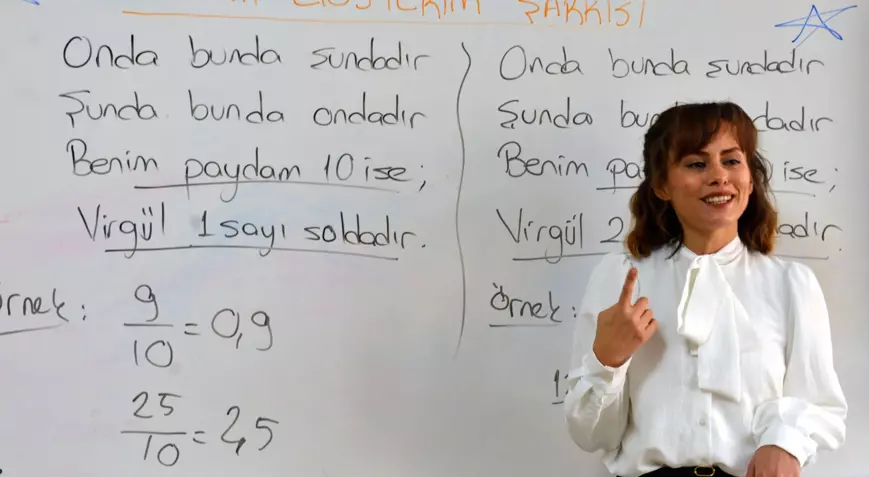 ŞARKISI
Onda bunda şundadır
Şunda bunda ondadır
Benim paydam 10 ise;
Virgül 1 sayı soldadır.
Örnek:
9/10 = 0,9
25/10 = 2,5
Onda bunda şundadır
Şunda
Benim ise;
Virgül 2
Örnek: